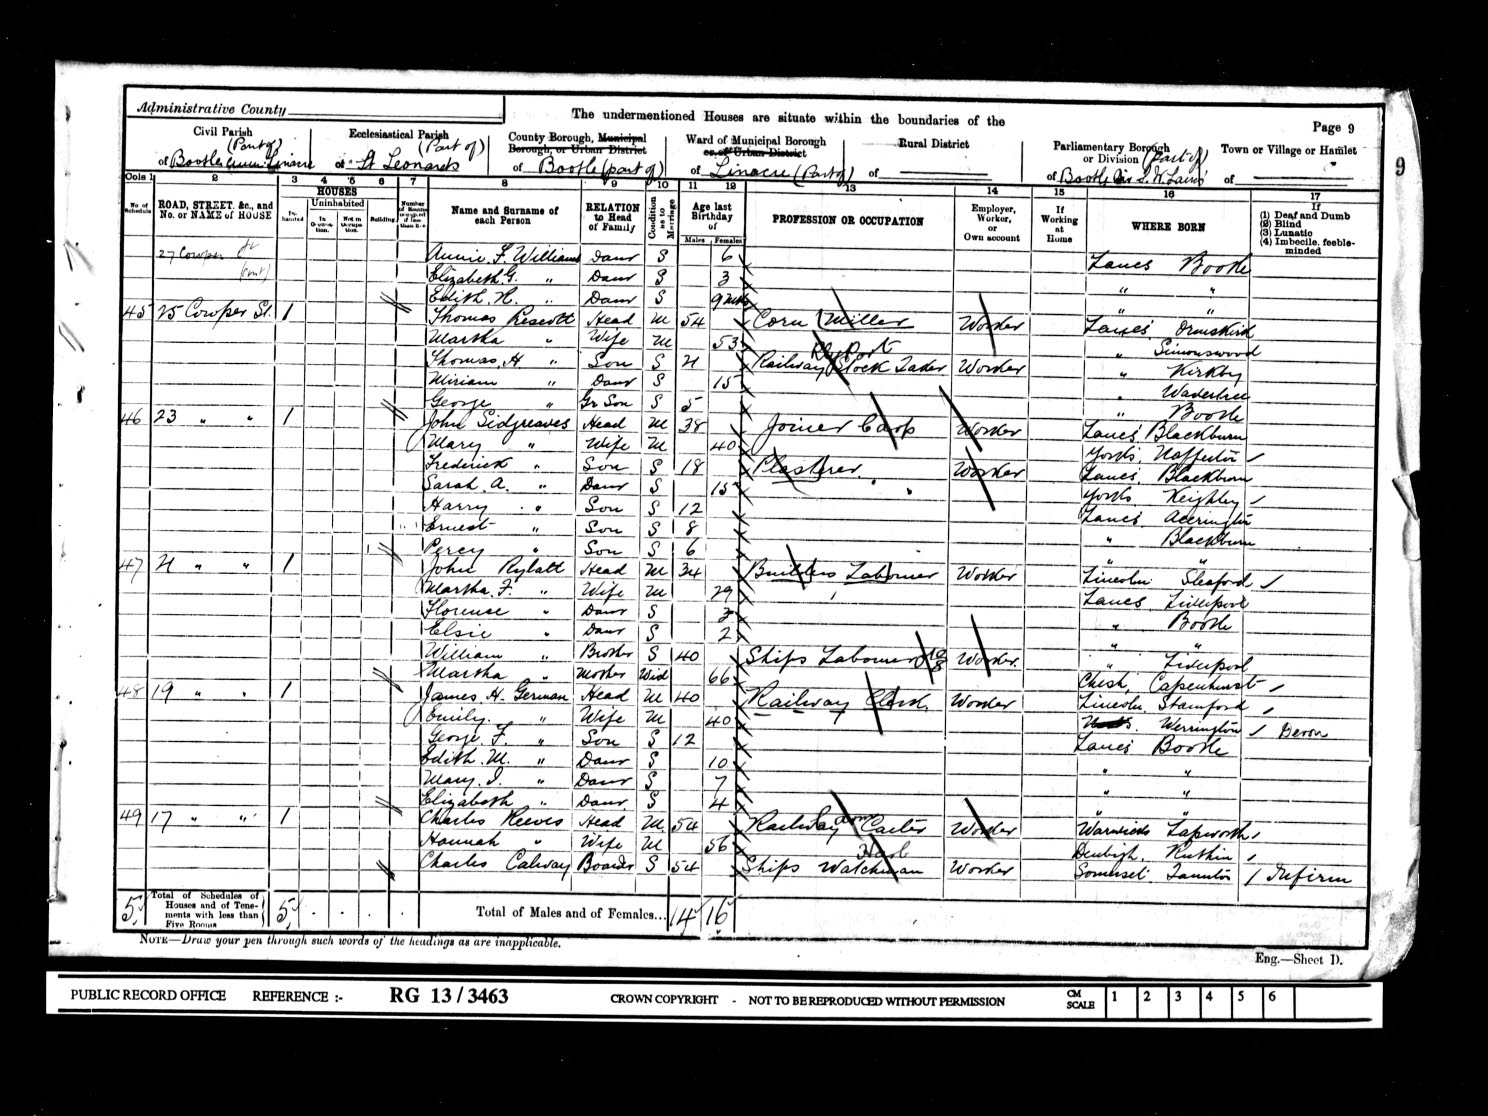 Administrative County
The undermentioned Houses are situate within the boundaries of the
Page 9
Civil Parish (Part of) of Bootle cum Linacre
Ecclesiastical Parish (Part of) of St Leonards
County Borough, Municipal Borough, or Urban District of Bootle (part of)
Ward of Municipal Borough or of Urban District of Linacre (Part of)
Rural District of
Parliamentary Borough or Division (Part of) of Bootle
Town or Village or Hamlet of
9
Cols 1 2 3 4 5 6 7 8 9 10 11 12 13 14 15 16 17
No. of Schedule
ROAD, STREET, &c., and No. or NAME of HOUSE
HOUSES
Inhabited
Uninhabited
In Occupation.
Not in Occupation.
Building
Number of Rooms occupied if less than five
Name and Surname of each Person
RELATION to Head of Family
Condition as to Marriage
Age last Birthday of
Males Females
PROFESSION OR OCCUPATION
Employer, Worker, or Own account
If Working at Home
WHERE BORN
If (1) Deaf and Dumb (2) Blind (3) Lunatic (4) Imbecile, feeble-minded
27 Cowper St (cont) Annie F. Williams Daur S 6 Lancs Bootle
Elizabeth G. " Daur S 3 " "
Edith H. " Daur S 9 mths " "
45 25 Cowper St. 1 Thomas Prescott Head M 54 Corn Miller Worker Lancs Ormskirk
Martha " Wife M 53 " Simonswood
Thomas H " Son S 21 Railway Stock Taker Worker " Kirkby
Miriam " Daur S 15 " Wavertree
George " Gr Son S 5 " Bootle
46 23 " " 1 John Sidgreaves Head M 38 Joiner Carp Worker Lancs Blackburn
Mary " Wife M 40 Yorks Nafferton
Frederick " Son S 18 Plasterer Worker Lancs Blackburn
Sarah A. " Daur S 15 Yorks Keighley
Harry " Son S 12 Lancs Accrington
Ernest " Son S 8 " Blackburn
Percy " Son S 6 " "
47 21 " " 1 John Rylatt Head M 34 Builders Labourer Worker Lincoln Sleaford
Martha F. " Wife M 29 Lancs Liverpool
Florence " Daur S 3 " Bootle
Elsie " Daur S 2 " "
William " Brother S 40 Ships Labourer Worker " Liverpool
Martha " Mother Wid 66 Chesh. Capenhurst
48 19 " " 1 James H. German Head M 40 Railway Clerk Worker Lincoln Stamford
Emily " Wife M 40 Werrington Devon
George F. " Son S 12 Lancs Bootle
Edith M. " Daur S 10 " "
Mary I. " Daur S 7 " "
Elizabeth " Daur S 4 " "
49 17 " " 1 Charles Reeves Head M 54 Railway Carter Worker Warwicks Lapworth
Hannah " Wife M 56 Denbigh Ruthin
Charles Calway Boarder S 54 Ships Watchman Worker Somerset Taunton Infirm
5 Total of Schedules of Houses and of Tenements with less than Five Rooms 5
Total of Males and of Females... 14 16
NOTE—Draw your pen through such words of the headings as are inapplicable.
Eng.—Sheet D.
PUBLIC RECORD OFFICE REFERENCE :- RG 13 / 3463 CROWN COPYRIGHT - NOT TO BE REPRODUCED WITHOUT PERMISSION CM SCALE 1 2 3 4 5 6